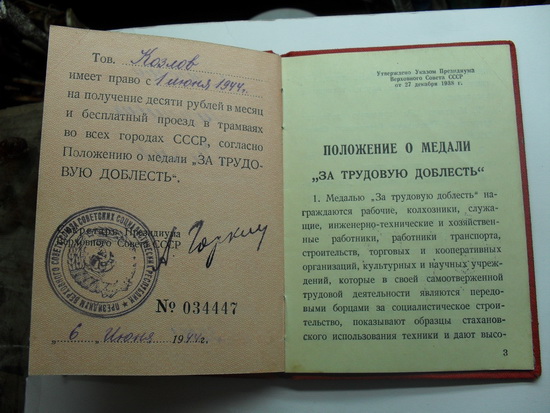 Тов. Козлов
имеет право с 1 июня 1944г.
на получение десяти рублей в месяц
и бесплатный проезд в трамваях
во всех городах СССР, согласно
Положению о медали „ЗА ТРУДО-
ВУЮ ДОБЛЕСТЬ“.
Секретарь Президиума
Верховного Совета СССР
А. Горкин
ПРЕЗИДИУМ ВЕРХОВНОГО СОВЕТА СОЮЗА СОВЕТСКИХ СОЦИАЛИСТИЧЕСКИХ РЕСПУБЛИК
№ 034447
„6 Июня 1944г.
Утверждено Указом Президиума
Верховного Совета СССР
от 27 декабря 1938 г.
ПОЛОЖЕНИЕ О МЕДАЛИ
„ЗА ТРУДОВУЮ ДОБЛЕСТЬ“
1. Медалью „За трудовую доблесть“ на-
граждаются рабочие, колхозники, служа-
щие, инженерно-технические и хозяйствен-
ные работники, работники транспорта,
строительства, торговых и кооперативных
организаций, культурных и научных учреж-
дений, которые в своей самоотверженной
трудовой деятельности являются передо-
выми борцами за социалистическое строи-
тельство, показывают образцы стаханов-
ского использования техники и дают высо-
3